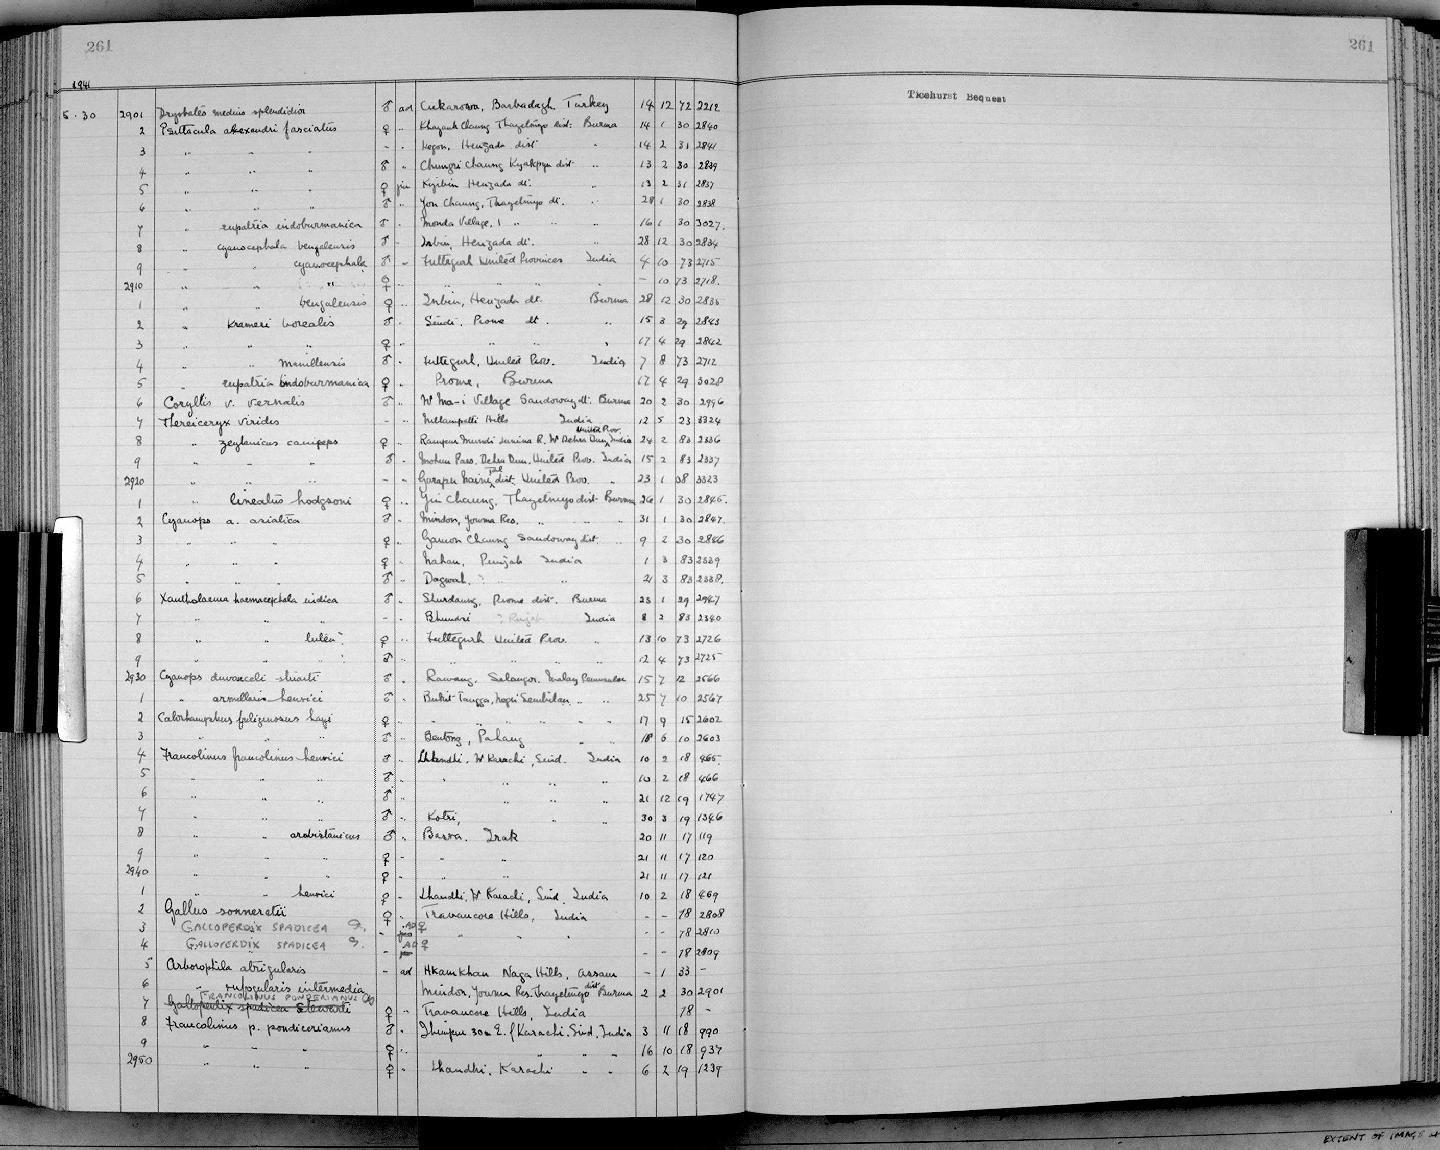 261
261
1941
Ticehurst Bequest
5.30 2901 Dryobates medius splendidior ♂ ad Cukarowa, Barbadagh Turkey 14 12 72 2212
2 Psittacula alexandri fasciatus ♀ " Chaung Thayetmyo dist. Burma 14 1 30 2840
3 " " " - " Kegon, Henzada dist " 14 2 31 2841
4 " " " ♂ " Chungzi Chaung Kyakpyu dist " 13 2 30 2839
5 " " " ♀ juv Kyibin Henzada dt. " 13 2 31 2837
6 " " " ♂ " Yon Chaung, Thayetmyo dt. " 28 1 30 2838
7 " eupatria indoburmanica ♂ " Monda Village, " " " 16 1 30 3027.
8 " cyanocephala bengalensis ♂ " Inbin, Henzada dt. " 28 12 30 2834
9 " " cyanocephala ♂ " Futtegurh United Provinces India 4 10 73 2715
2910 " " " ♀ " " " " - 10 73 2718.
1 " " bengalensis ♀ " Inbin, Henzada dt. Burma 28 12 30 2835
2 " Krameri borealis ♂ " Sindi. Prome dt. " 15 3 29 2843
3 " " " ♀ " " " " " 17 4 29 2842
4 " " manillensis ♂ " Futtegurh, United Prov. India 7 8 73 2712
5 " eupatria indoburmanica ♀ " Prome, Burma 17 4 29 3028
6 Coryllis v. vernalis ♂ " Wa-i Village Sandoway dt. Burma 20 2 30 2996
7 Thereiceryx viridis - " Nellampatti Hills India 12 5 23 3324
United Prov.
8 " zeylanicus caniceps ♀ " Rampur Mundi Jumna R. W Dehra Dun, India 24 2 83 2336
9 " " " ♂ " Mohun Pass, Dehra Dun. United Prov. India 15 2 83 2337
2920 " " " - " Garapu Naini Tal dist. United Prov. " 23 1 08 3323
1 " lineatus hodgsoni ♀ " Yin Chaung, Thayetmyo dist. Burma 26 1 30 2845.
2 Cyanops a. asiatica ♂ " Mindon, Yowma Res. " " " 31 1 30 2847.
3 " " " ♀ " Gamon Chaung Sandoway dist. " 9 2 30 2846
4 " " " ♀ " Nahan, Punjab India 1 3 83 2339
5 " " " ♂ " Dagwah, ? " 21 3 83 2338.
6 Xantholaema haemacephala indica ♂ " Shwdaung, Prome dist. Burma 23 1 29 2987
7 " " " - " Bhundri ? Punjab India 8 2 83 2340
8 " " lutea ♀ " Futtegurh United Prov. " 13 10 73 2726
9 " " " ♂ " " " " 12 4 73 2725
2930 Cyanops duvauceli stuarti ♂ " Rawang, Selangor, Malay Peninsular 15 7 12 2566
1 " armillaris henrici ♂ " Bukit Tangga, Negri Sembilan " " 25 7 10 2567
2 Calorhamphus fuliginosus hayi ♀ " " " " " " 17 9 15 2602
3 " " " ♂ " Bentong, Pahang " " 18 6 10 2603
4 Francolinus francolinus henrici ♂ " Lhandhi, W Karachi, Sind. India 10 2 18 465.
5 " " " ♂ " " " " " 10 2 18 466
6 " " " ♂ " " " " 21 12 19 1747
7 " " " ♂ " Kotri, " " 30 3 19 1346
8 " " arabistanicus ♂ " Basra. Irak 20 11 17 119
9 " " " ♀ " " " 21 11 17 120
2940 " " " ♀ " " " 21 11 17 121
1 " " henrici ♀ " Lhandhi, W Karachi, Sind, India 10 2 18 469
2 Gallus sonneratii ♀ " Travancore Hills, India - - 78 2808
3 GALLOPERDIX SPADICEA ♀. - AD ♀ " " " - - 78 2810
4 GALLOPERDIX SPADICEA ♀. - AD ♀ - - 78 2809
5 Arboroptila atrigularis - ad Hkamkhan Naga Hills, Assam - 1 33 -
6 " rufogularis intermedia Mindon, Yowma Res. Thayetmyo dist. Burma 2 2 30 2901
FRANCOLINUS PONDERIANUS
7 Galloperdix spadicea Stewarti ♀ " Travancore Hills, India 78 -
8 Francolinus p. pondicerianus ♂ " 30m E. of Karachi. Sind. India 3 11 18 990
9 " " " ♀ " " " " 16 10 18 937
2950 " " " ♀ " Lhandhi, Karachi " " 6 2 19 1239
EXTENT OF IMAGE